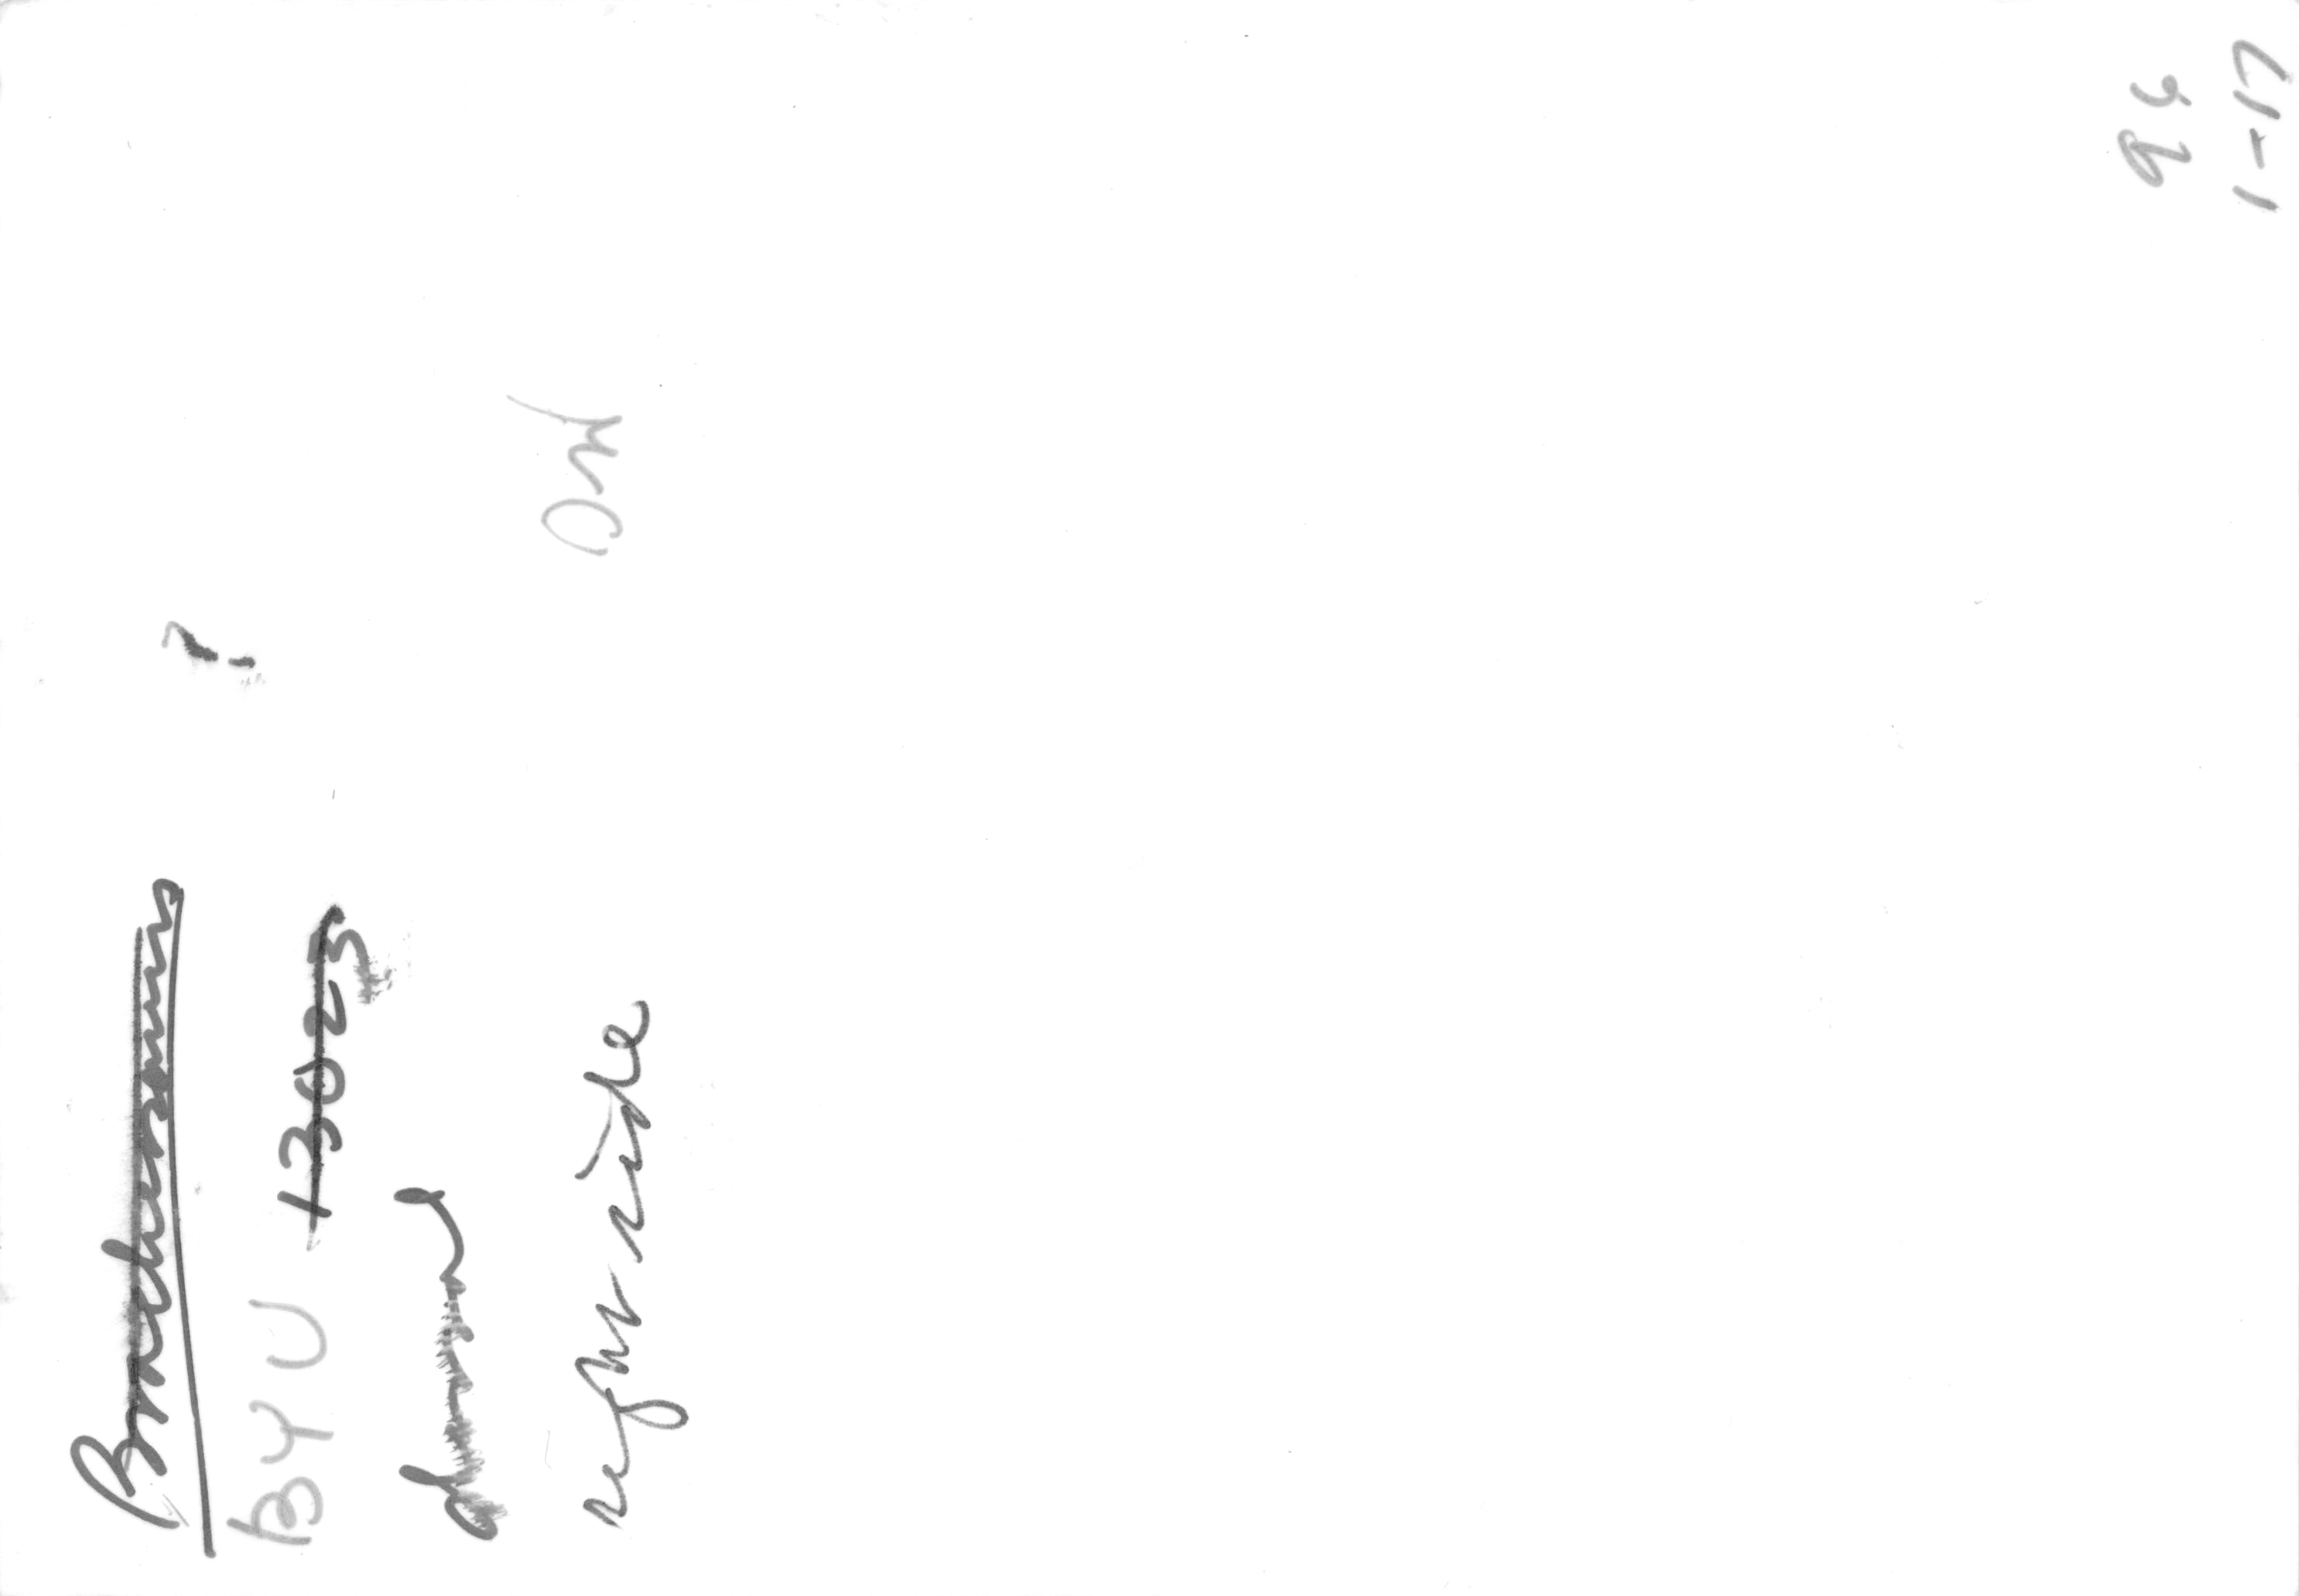 Brachiosaurus
?
BYU 13023
dorsal
right side
96
1-17